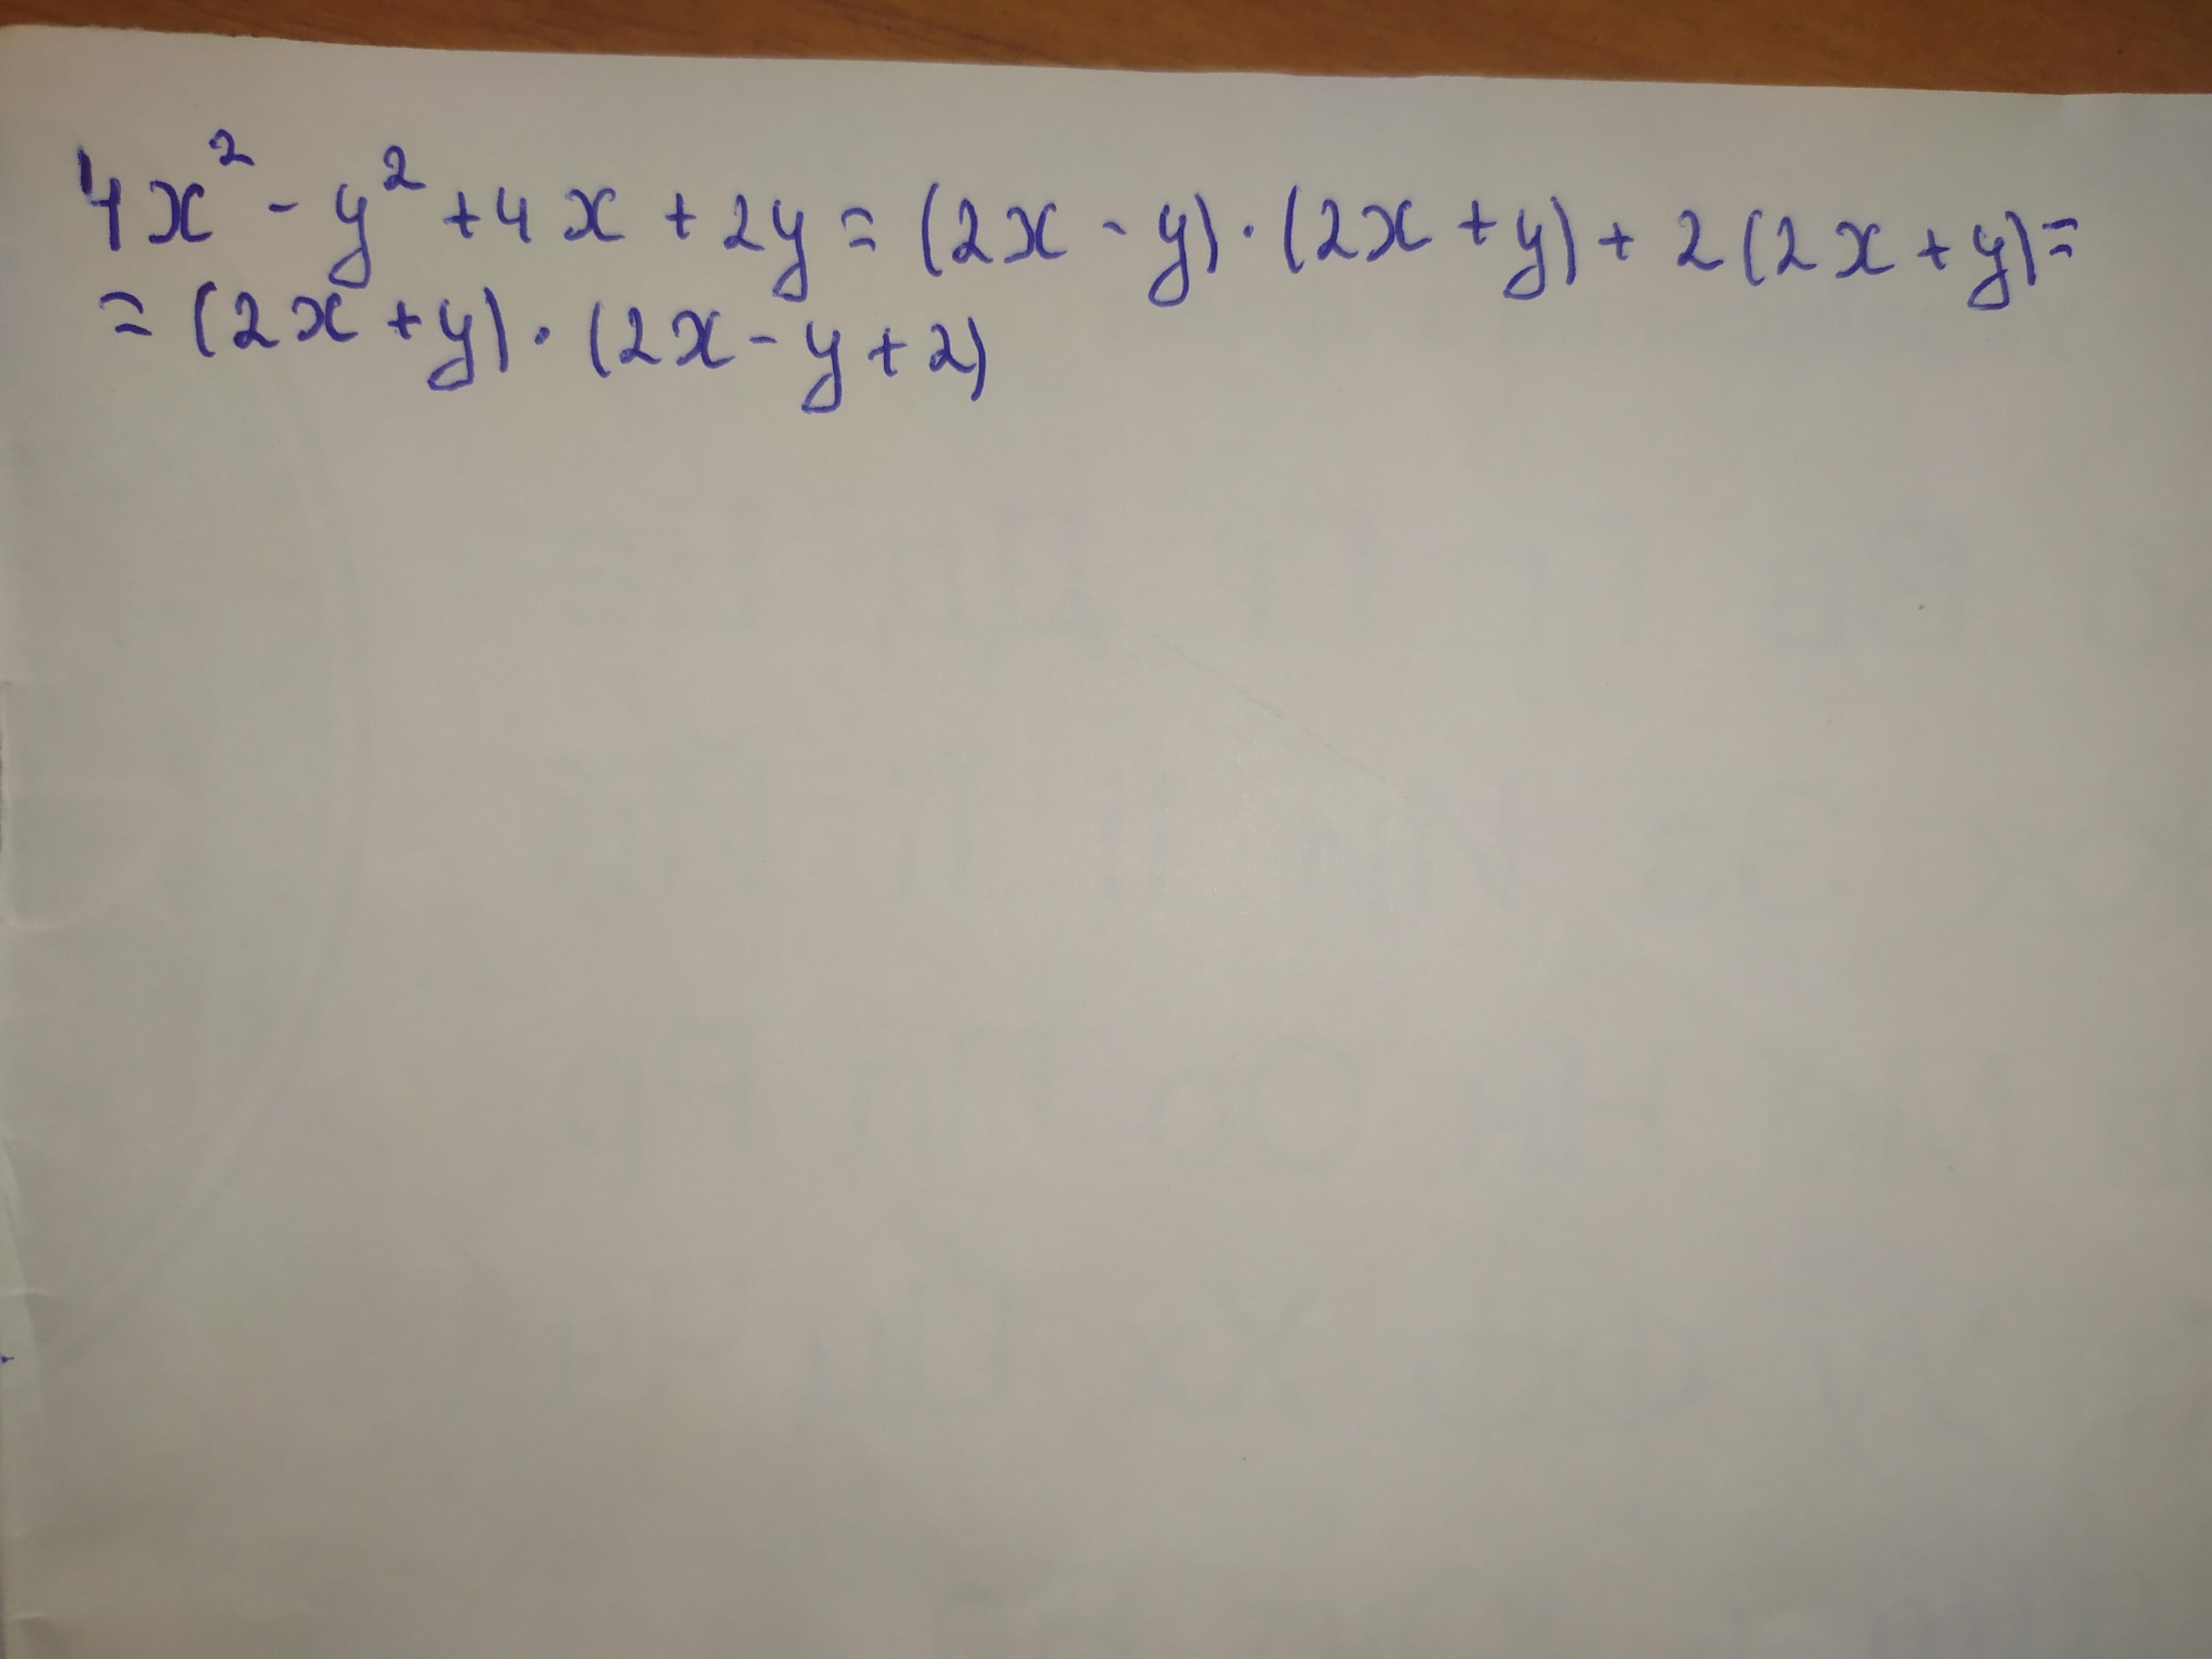 4x² - y² + 4x + 2y = (2x - y) · (2x + y) + 2(2x + y) =
= (2x + y) · (2x - y + 2)